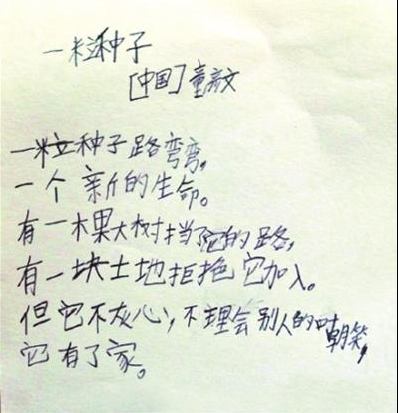 一粒种子
[中国]童
一粒种子路弯弯,
一个新的生命。
有一棵大树挡了它的路,
有一块土地拒绝它加入。
但它不灰心,不理会别人的嘲笑,
它有了家。